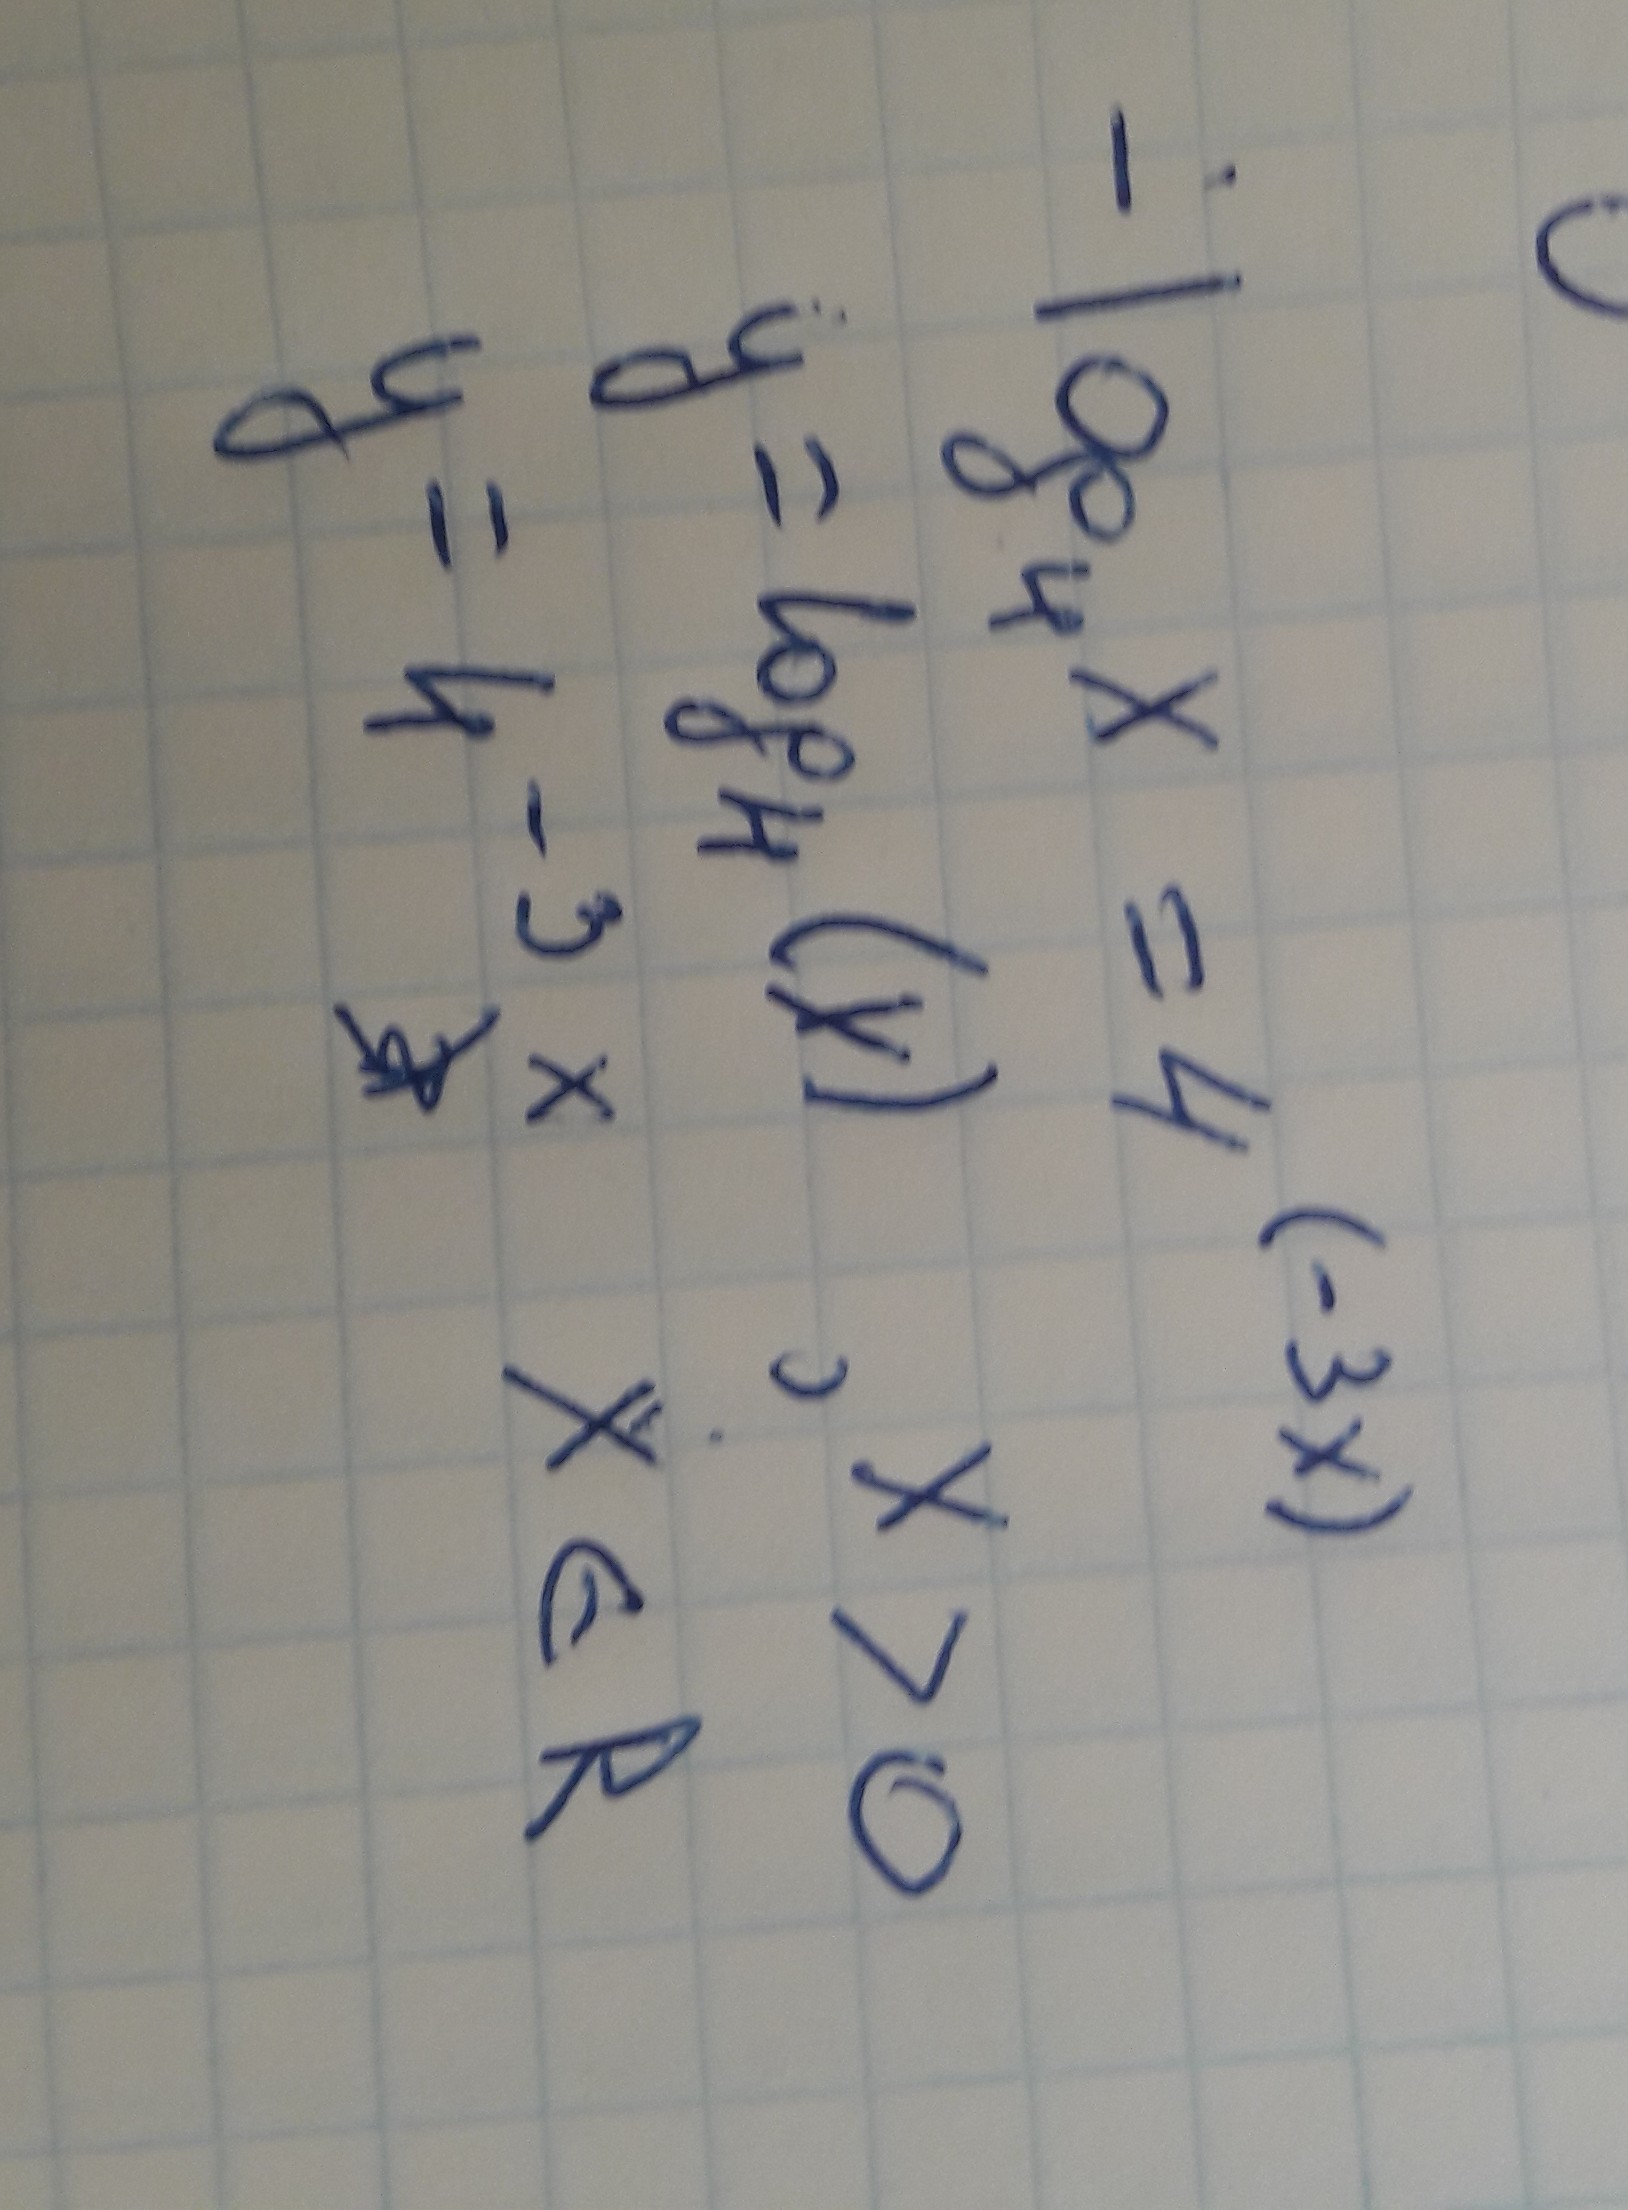 -log₄x = 4^(-3x)
y = log₄(x) , x > 0
y = 4^-3x x ∈ R